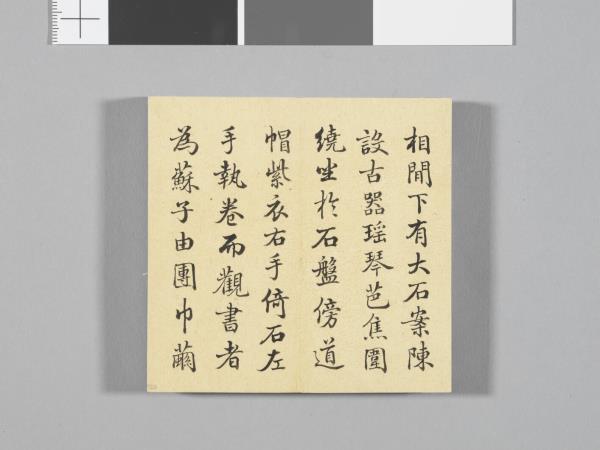 相閒下有大石案陳
設古器瑤琴芭焦圍
繞坐於石盤傍道
帽紫衣右手倚石左
手執卷而觀書者
為蘇子由團巾繭